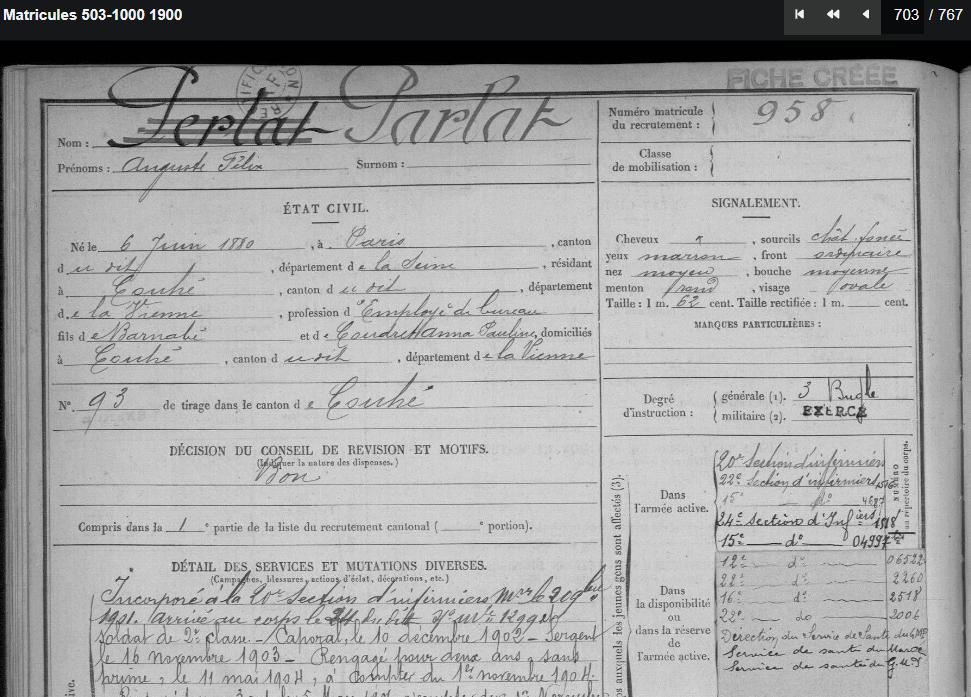 Matricules 503-1000 1900
703 / 767
FICHE CRÉÉE
Nom : Perlat Parlat
Prénoms : Auguste Félix Surnom :
ÉTAT CIVIL.
Né le 6 Juin 1880, à Paris, canton
du dit, département de la Seine, résidant
à Couhé, canton du dit, département
de la Vienne, profession d'Employé de bureau
fils de Barnabé et de Coudret Anna Pauline, domiciliés
à Couhé, canton du dit, département de la Vienne
N° 93 de tirage dans le canton de Couhé
DÉCISION DU CONSEIL DE REVISION ET MOTIFS.
(Indiquer la nature des dispenses.)
Bon
Compris dans la 1e partie de la liste du recrutement cantonal ( e portion).
DÉTAIL DES SERVICES ET MUTATIONS DIVERSES.
(Campagnes, blessures, actions d'éclat, décorations, etc.)
Incorporé à la 20e Section d'infirmiers Mres le
1901. Arrivé au corps le
Soldat de 2e classe - Caporal, le 10 décembre 1902 - Sergent
le 16 novembre 1903 - Rengagé pour deux ans, sans
prime, le 11 mai 1904, à compter du 1er novembre 1904.
Numéro matricule
du recrutement : 958
Classe
de mobilisation :
SIGNALEMENT.
Cheveux, sourcils chât. foncé
yeux marron, front ordinaire
nez moyen, bouche moyenne
menton rond, visage ovale
Taille : 1 m. 62 cent. Taille rectifiée : 1 m. cent.
MARQUES PARTICULIÈRES :
Degré
d'instruction :
générale (1). 3
militaire (2). EXERCÉ
Dans
l'armée active.
20e Section d'infirmiers
22e Section d'infirmiers
15e do 4687
24e Section d'Infiers 1818
15e do 04997
NUMÉRO
au répertoire du corps.
Dans
la disponibilité
ou
dans la réserve
de
l'armée active.
12e do 06522
22e do 2260
16e do 2518
22e do 2006
Direction du Service de Santé du GMP
Service de santé du Maroc
Service de santé du G.M.P
aux auxquels les jeunes gens sont affectés (3).